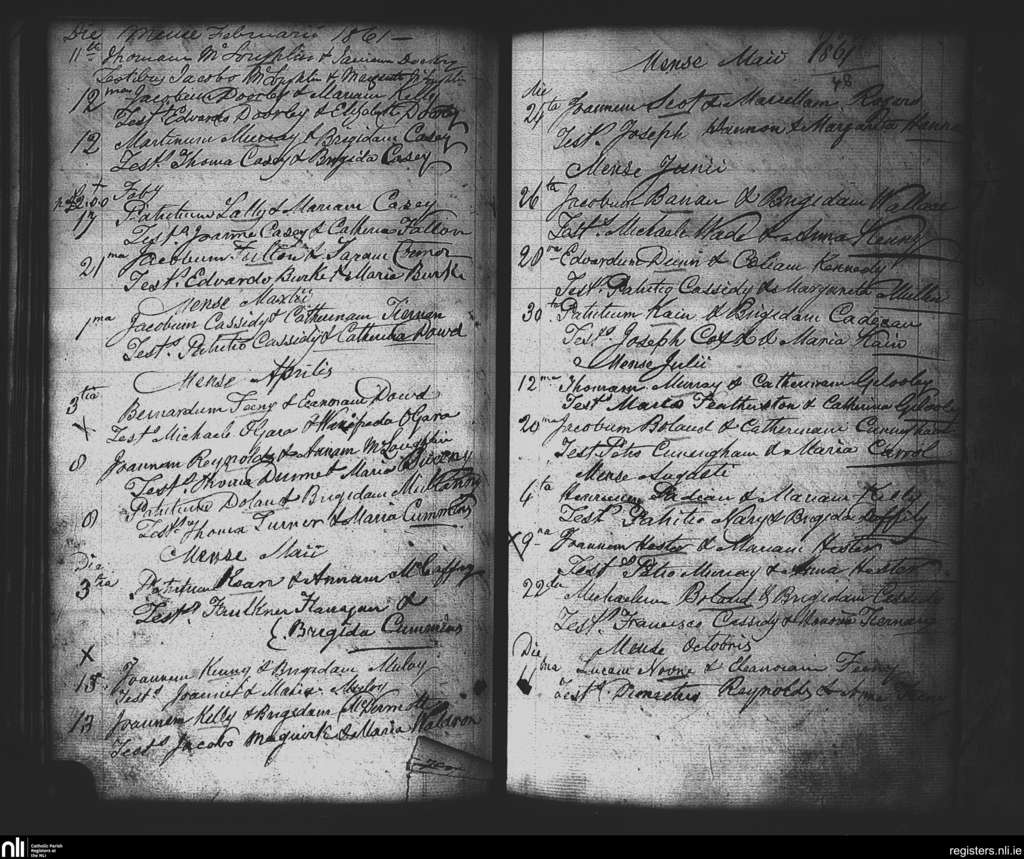 Die Mense Februarii 1861 —
11th Thomam McLoughlin &
Testibus Jacobo McLoughlin &
12mam Jacobum Doorley & Mariam Kelly
Test. Edvardo Doorley & Elizabeth Dooley
12 Martinum Murray & Brigidam Casey
Test. Thoma Casey & Brigida Casey
17 Patritium Lally & Mariam Casey
Testa Joanne Casey & Catherina Fallon
21ma Jacobum Fulton & Saram Connor
Tests Edvardo Burke & Maria Burke
Mense Martii
1ma Jacobum Cassidy & Catherinam Kiernan
Tests Patritio Cassidy & Catherina Dowd
Mense Aprilis
3tia Bernardum Feeny & Leanoram Dowd
X Tests Michaele OGara & Winifreda OGara
8 Joannem Reynolds & Annam McLoughlin
Tests Thoma Dunne & Maria
8 Patritium Dolan & Brigidam
Tests Thoma Turner & Maria Cummins
Mense Maii
Die
3tia Patritium Kean & Annam McCaffrey
Tests Faulkner Flanagan &
Brigida Cummins
X
13 Joannem Kenny & Brigidam Muloy
Tests & Maria Muloy
13 Joannem Kelly & Brigidam McDermott
Tests Jacobo Maguirk & Maria Waldron
Mense Maii 1861
48
Die
24ta Joannem Scot & Marcellam Rogers
Tests Joseph Hannon & Margarita Hannon
Mense Junii
26ta Jacobum Banan & Brigidam Wallace
Tests Michaele Wade & Anna Kenny
20ma Edvardum Dunn & Celiam Kennedy
Tests Patritio Cassidy & Margareta Mullen
30ta Patritium Kain & Brigidam Cadecan
Tests Joseph Cox & Maria Kain
Mense Julii
12ma Thomam Murray & Catherinam Gilooley
Tests Marko Fentherston & Catherina Gilooley
20ma Jacobum Boland & Catherinam Cuningham
Tests Petro Cunningham & Maria Carrol
Mense Augusti
4ta Henricum & Mariam Kelly
Tests Patritio Nary & Brigida
X 9na Joannem Hester & Mariam Hester
Tests Patrio Murray & Anna Hester
22da Michaelum Boland & Brigidam
Tests Francisco Cassidy & Honora Kiernan
Mense Octobris
Die
11ma Lucam Noone & Eleanoram Feeny
Tests Dionisius Reynolds & Anna
nli Catholic Parish
Registers at
the NLI
registers.nli.ie